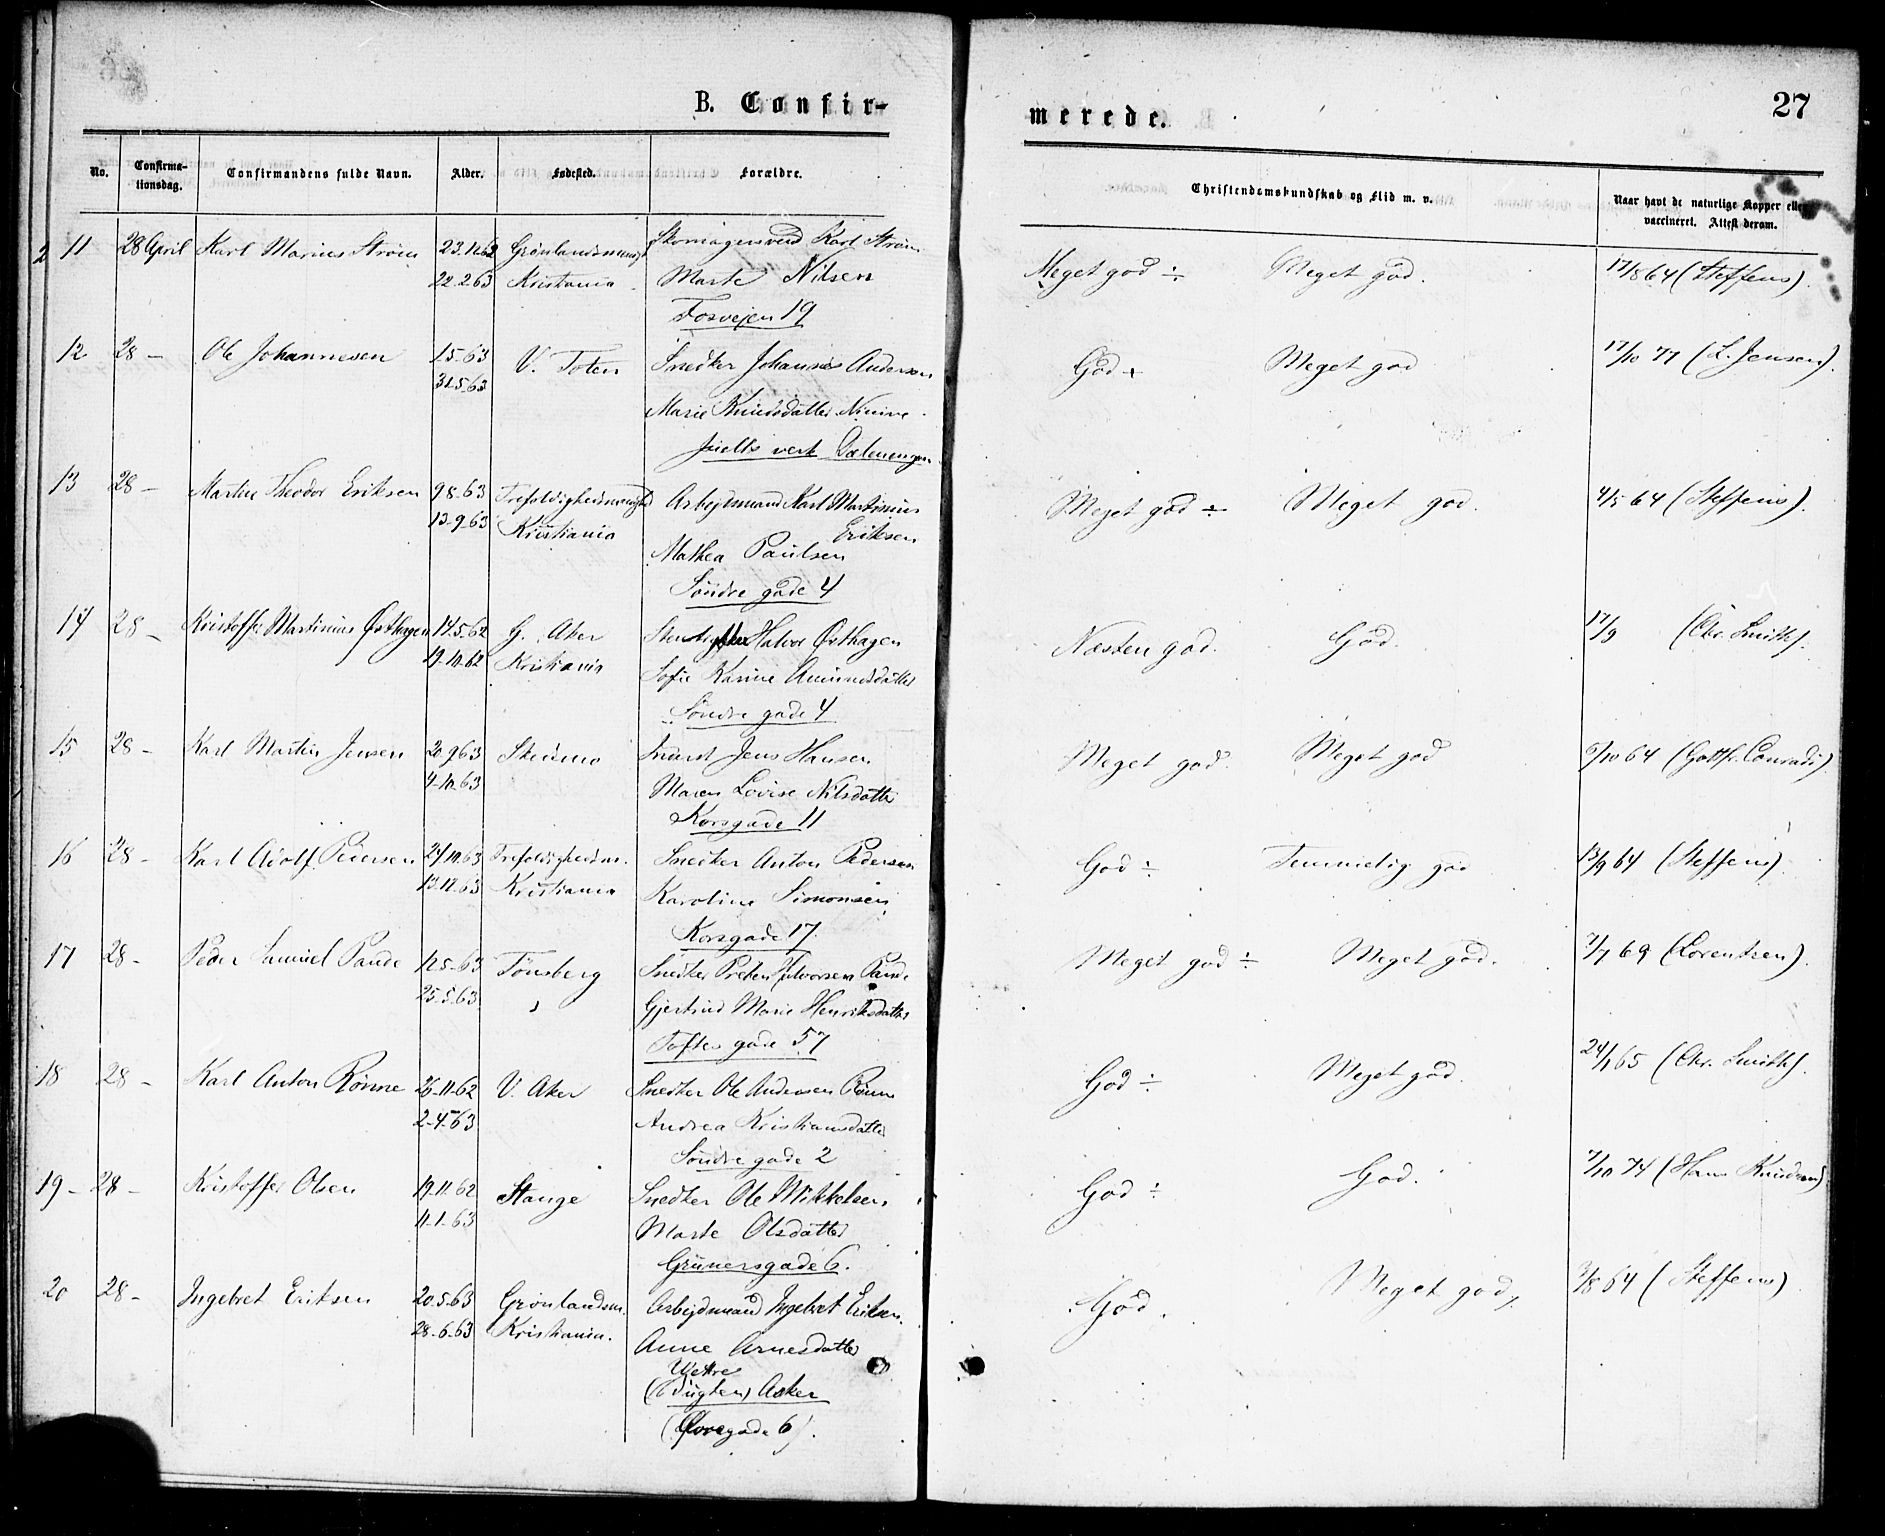 B. Confir-
merede.
27
No.
Confirma-
tionsdag.
Confirmandens fulde Navn.
Alder.
Fødested.
Forældre.
Christendomskundskab og Flid m. v.
Naar havt de naturlige Kopper eller
vaccineret. Attest derom.
2 11 28 April Karl Marius Strøm 23.11.62 Grønlandsmenigh Skomagersvend Karl Strøm Meget god ÷ Meget god. 17/8 64 (Steffens).
22.2.63 Kristiania. Marte Nilsen
Fosvejen 19
12 28 - Ole Johannesen 1.5.63 V. Toten Snedker Johannes Andersen God + Meget god 17/10 77 (L. Jensen).
31.5.63
Marie Knudsdatter
verk Dælenengen
13 28 - Martin Theodor Eriksen 9.8.63 Trefoldighedsmenighd Arbejdsmand Karl Martinius Meget god ÷ Meget god. 4/5 64 (Steffens).
13-9-63 Kristiania Eriksen
Mathea Paulsen
Søndre gade 4
14 28 - Kristoffer Martinius Østhagen 14.5.62 G. Aker Halvor Østhagen Næsten god. God. 17/9 (Chr. Smith).
19.10.62 Kristiania Sofie Karine Amundsdatter
Søndre gade 4
15 28 - Karl Martin Jensen 20.9.63 Skedsmo Jens Hansen Meget god. Meget god 6/10 64 (Gottfr. Conradi).
4.10.63 Maren Lovise Nilsdatter
Korsgade 11
16 28 - Karl Adolf Pedersen 24.10.63 Trefoldighedsm. Snedker Anton Pedersen God ÷ Temmelig god 13/9 64 (Steffens).
13.12.63 Kristiania Karoline Simonsen
Korsgade 17.
17 28 - Peder Samuel Paude 12.5.63 Tønsberg Snedker Halvorsen Meget god ÷ Meget god. 7/7 69 (Lorentzen).
25.5.63 Gjertrud Marie Henriksdatter
Toftes gade 57
18 28 - Karl Anton Rønne 26.11.62 V. Aker Snedker Ole Andersen Rønne God ÷ Meget god. 24/1 65 (Chr. Smith).
2.4.63 Andrea Kristiansdatter
Søndre gade 2
19 - 28 - Kristoffer Olsen 19.11.62 Stange Snedker Ole Mikkelsen God ÷ God. 7/10 74 (Hans Knudsen)
11-1-63 Marte Olsdatter
Grünersgade 6.
20 28 - Ingebret Eriksen 20.5.63 Grønlandsm. Arbejdsmand Ingebret Eriksen. God. Meget god 3/8 64 (Steffens)
28-6-63 Kristiania. Anne Arnesdatter
Asker
gade 6).